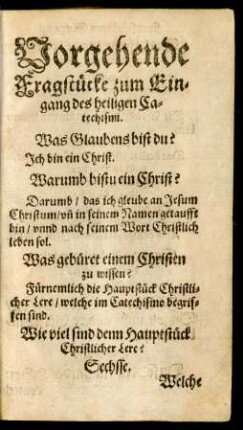 Vorgehende
Fragstücke zum Ein-
gang des heiligen Ca-
techismi.
Was Glaubens bist du?
Ich bin ein Christ.
Warumb bistu ein Christ?
Darumb / das ich gleube an Jesum
Christum / vñ in seinem Namen getaufft
bin / vnnd nach seinem Wort Christlich
leben sol.
Was gebüret einem Christen
zu wissen?
Fürnemlich die Hauptstück Christli-
cher Lere / welche im Catechismo begrif-
fen sind.
Wie viel sind denn Hauptstück
Christlicher Lere?
Sechsse.
Welche